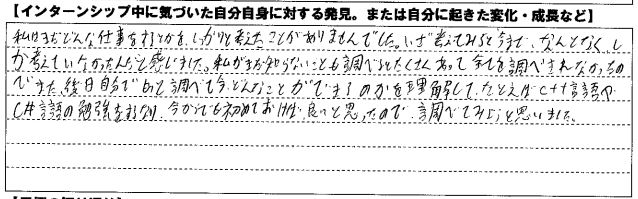 【インターンシップ中に気づいた自分自身に対する発見。または自分に起きた変化・成長など】
私はまだどんな仕事をするとかをしっかりと考えたことがありませんでした。いざ考えてみると今まで、なんとなくし
か考えていなかったんだと感じました。私がまだ知らないことも調べるとたくさんあって全てを調べきれなかったの
でまた、後日自分で調べて今どんなことができるのかを理解して、たとえばC++言語や
C#言語の勉強をするなり、今からでも初めておけば良いと思ったので、調べてみようと思いました。